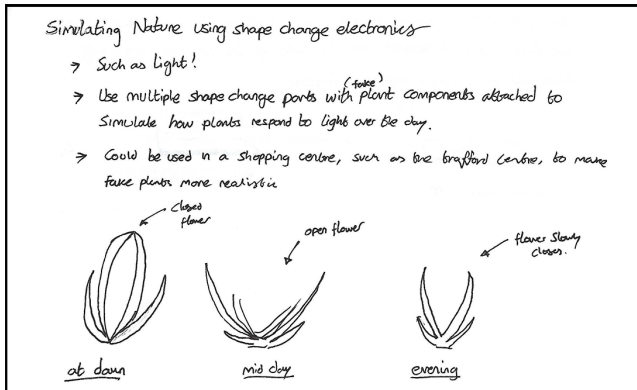 Simulating Nature using shape change electronics
→ Such as light!
(fake)
→ Use multiple shape change parts with plant components attached to
simulate how plants respond to light over the day.
→ Could be used in a shopping centre, such as the trafford centre, to make
fake plants more realistic
closed
flower
open flower
flower slowly
closes.
at dawn
mid day
evening